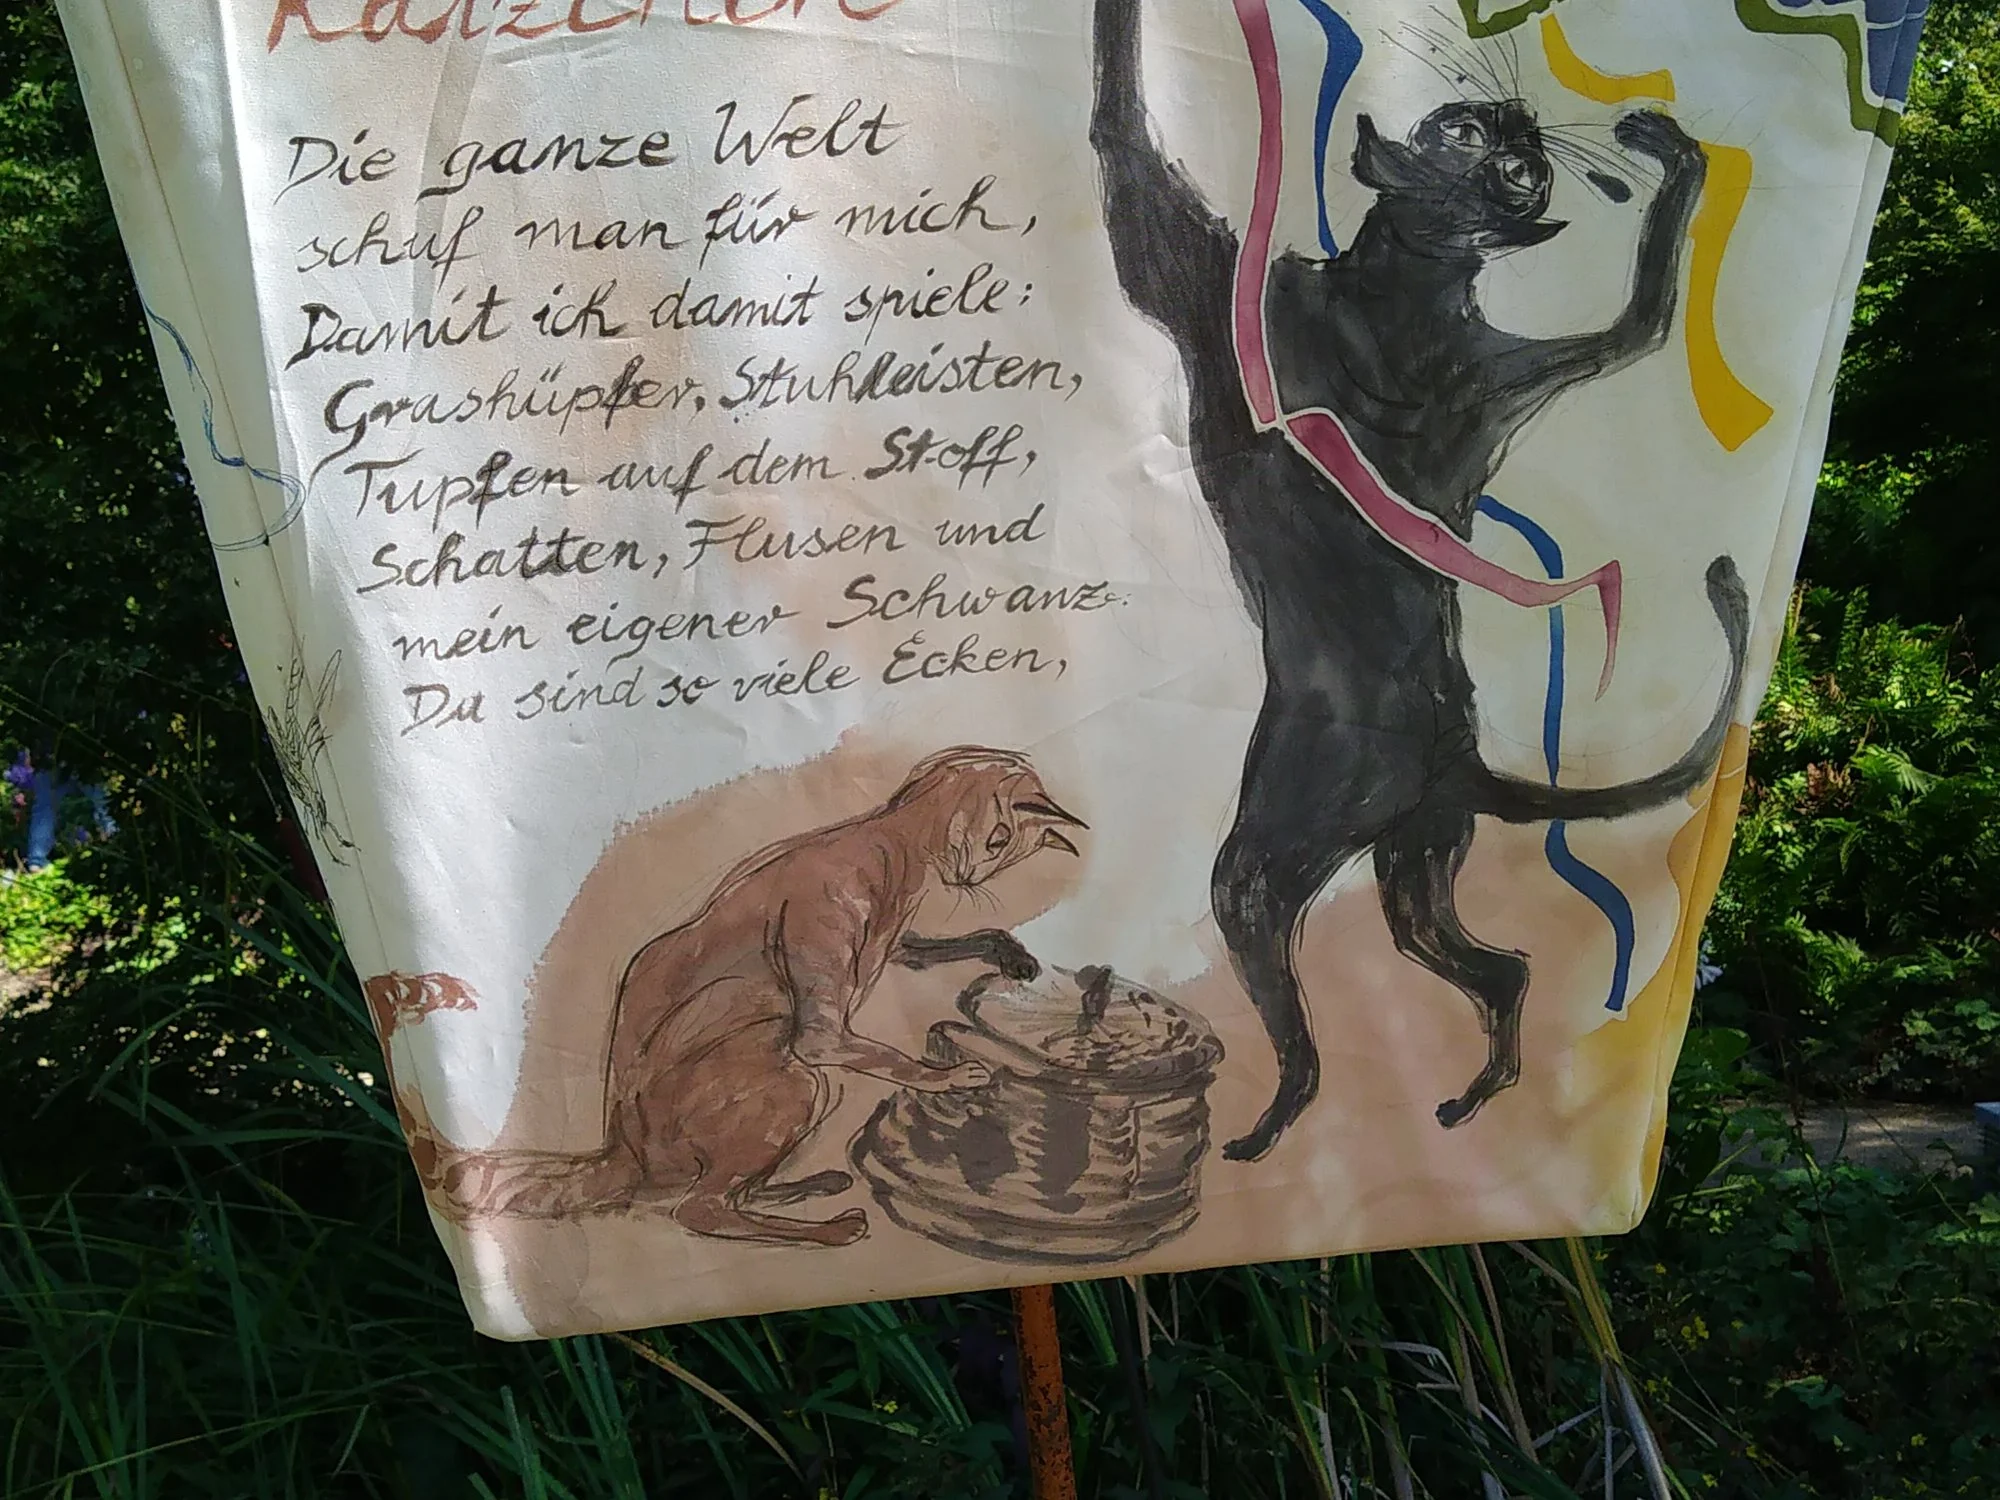 Kätzchen
Die ganze Welt
schuf man für mich,
Damit ich damit spiele:
Grashüpfer, Stuhlleisten,
Tupfen auf dem Stoff,
Schatten, Flusen und
mein eigener Schwanz.
Da sind so viele Ecken,